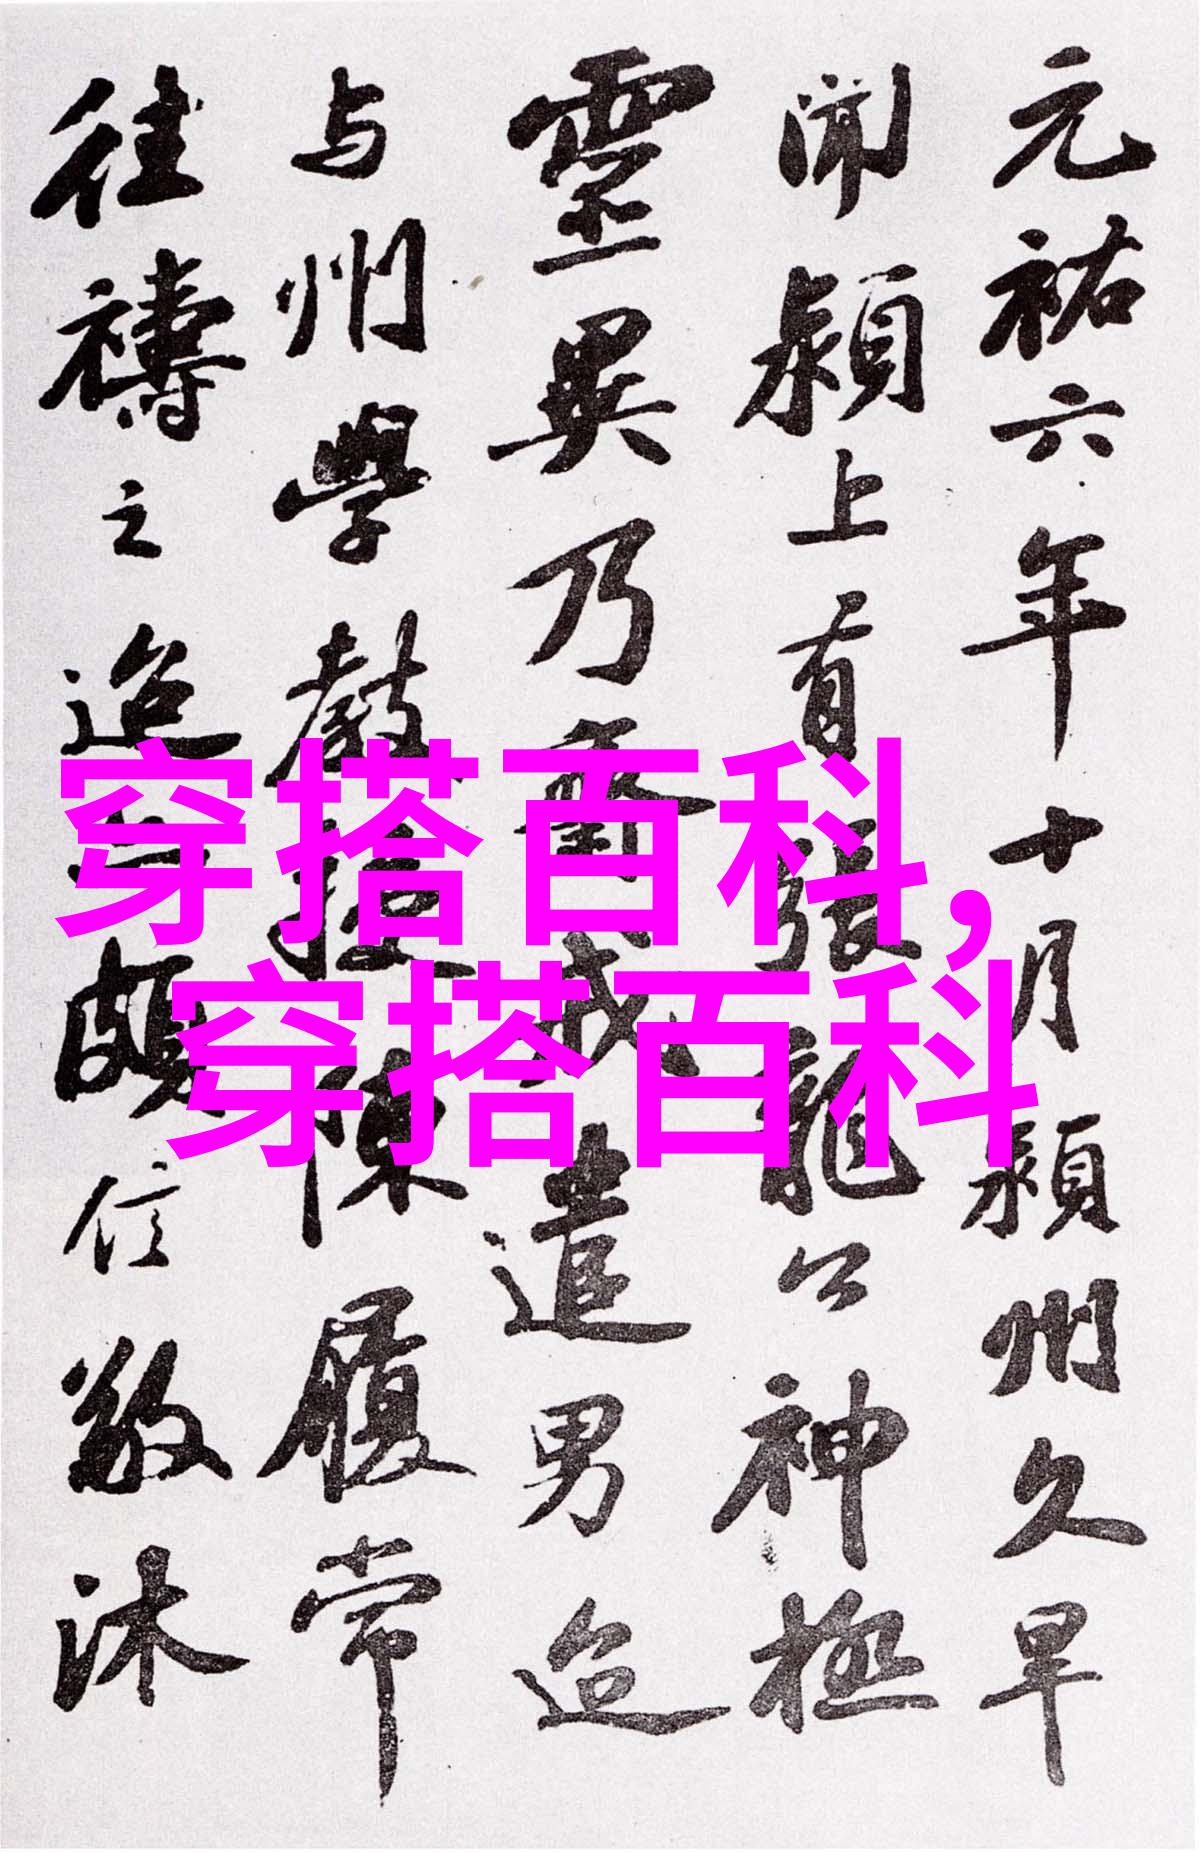 元祐六年十月潁州久旱
聞潁上有張龍公神極
靈異乃齋戒遣男迨
与州學教授陳履常
往禱之迨亦頗信敬沐
穿搭百科,
穿搭百科